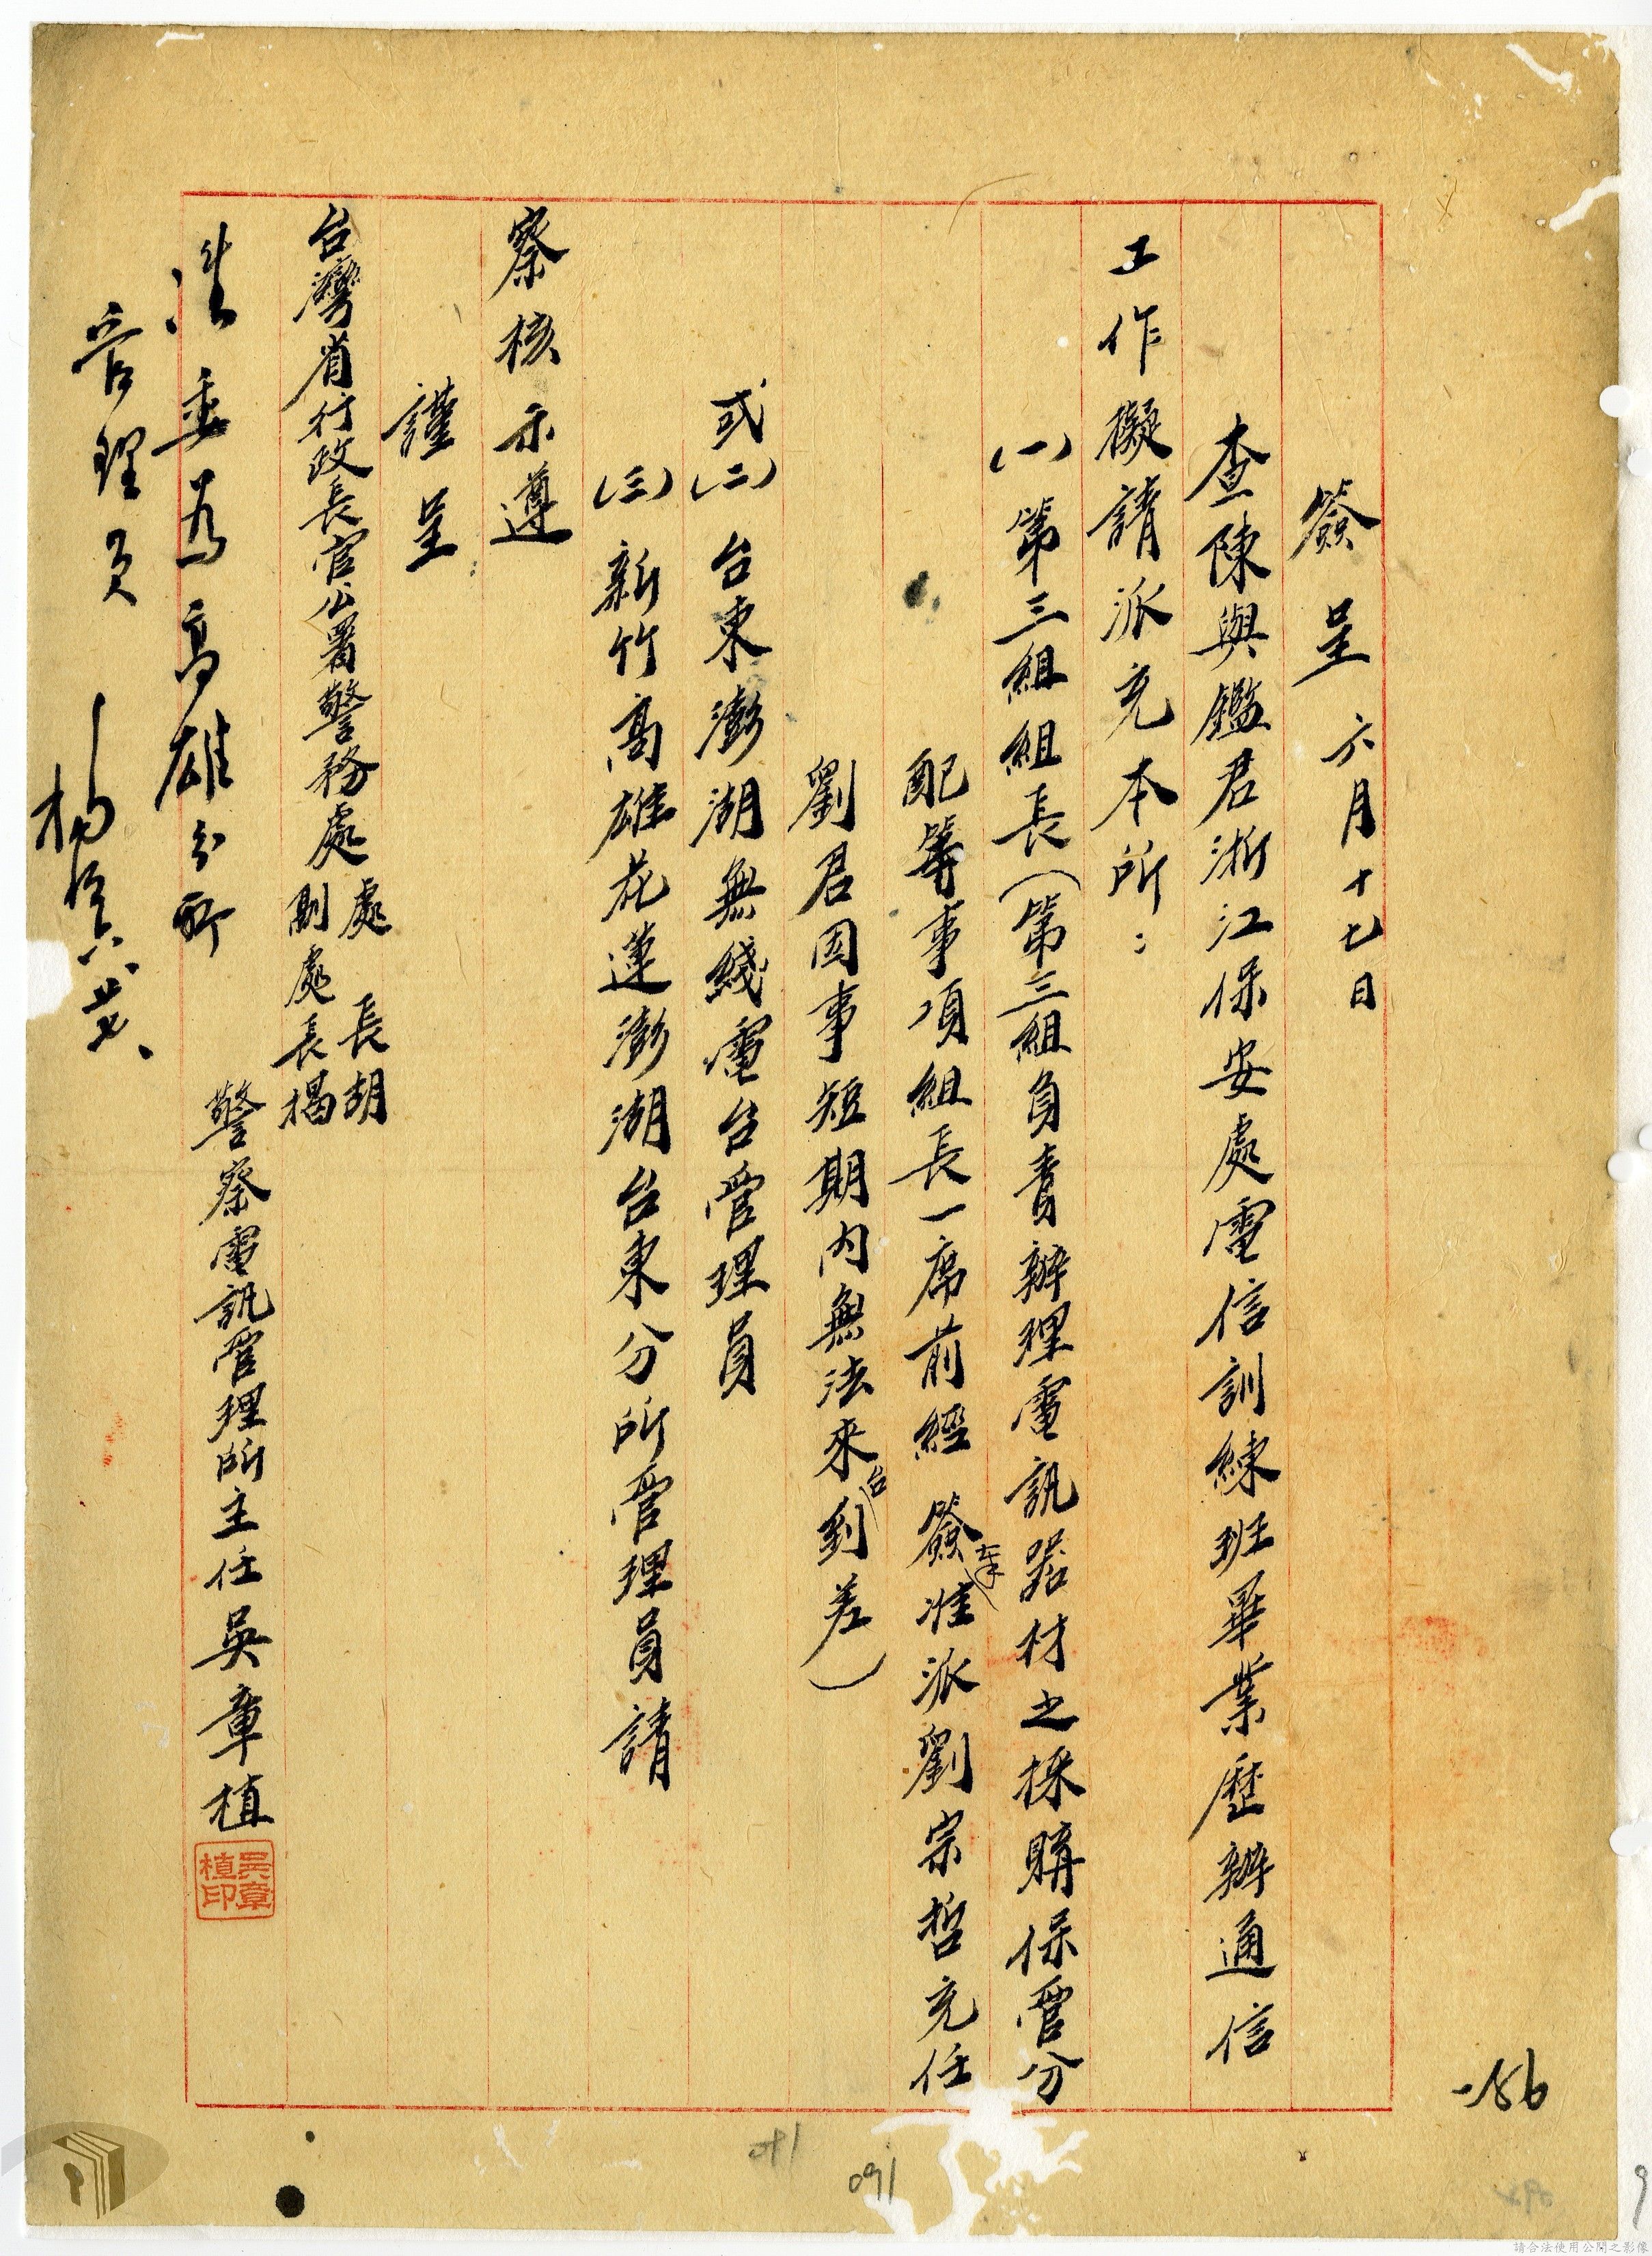 簽呈 六月十七日
查陳與鑑君浙江保安處電信訓練班畢業歷辦通信
工作擬請派充本所：
(一)第三組組長（第三組負責辦理電訊器材之採購保管分
配等事項組長一席前經簽奉准派劉宗哲充任
劉君因事短期內無法來台到差）
或(二)台東澎湖無綫電台管理員
(三)新竹高雄花蓮澎湖台東分所管理員請
察核示遵
謹呈
台灣省行政長官公署警務處處長胡
副處長楊
警察電訊管理所主任吳章植
吳章植印
准委為高雄分所
管理員
楊
-156
160
請合法使用公開之影像